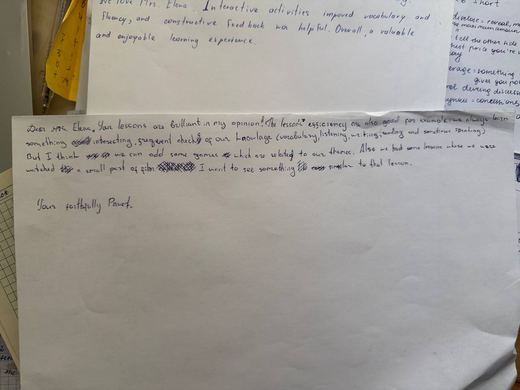 We love Mrs. Elena. Interactive activities improved vocabulary and
fluency, and constructive feedback was helpful. Overall, a valuable
and enjoyable learning experience.
Dear Mrs. Elena, Your lessons are brilliant in my opinion! The lessons' efficiency are also good for example we always learn
something interesting, frequent checks of our knowlage (vocabulary, listening, writing, reading and sometimes speaking)
But I think we can add some games which are related to our themes. Also we had some lessons where we were
watched a small part of film I want to see something similar to that lesson.
Yours faithfully Pavel.
short
tell the other side